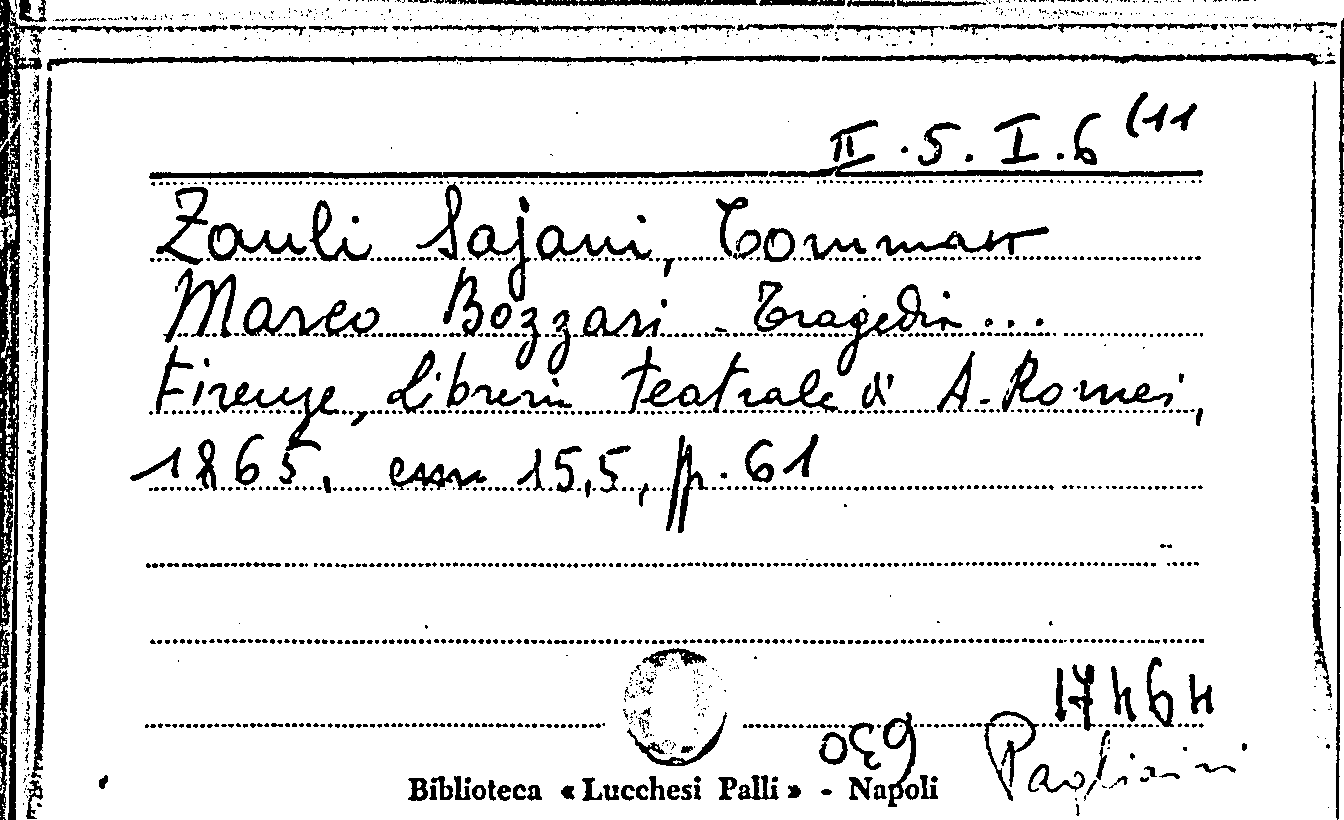 II.5.I.6 (11
Zauli Sajani, Tommaso
Marco Bozzari - Tragedia...
Firenze, Libreria teatrale di A. Romei,
1865, cm 15,5, pp. 61
17464
Pagliaini
Biblioteca « Lucchesi Palli » - Napoli